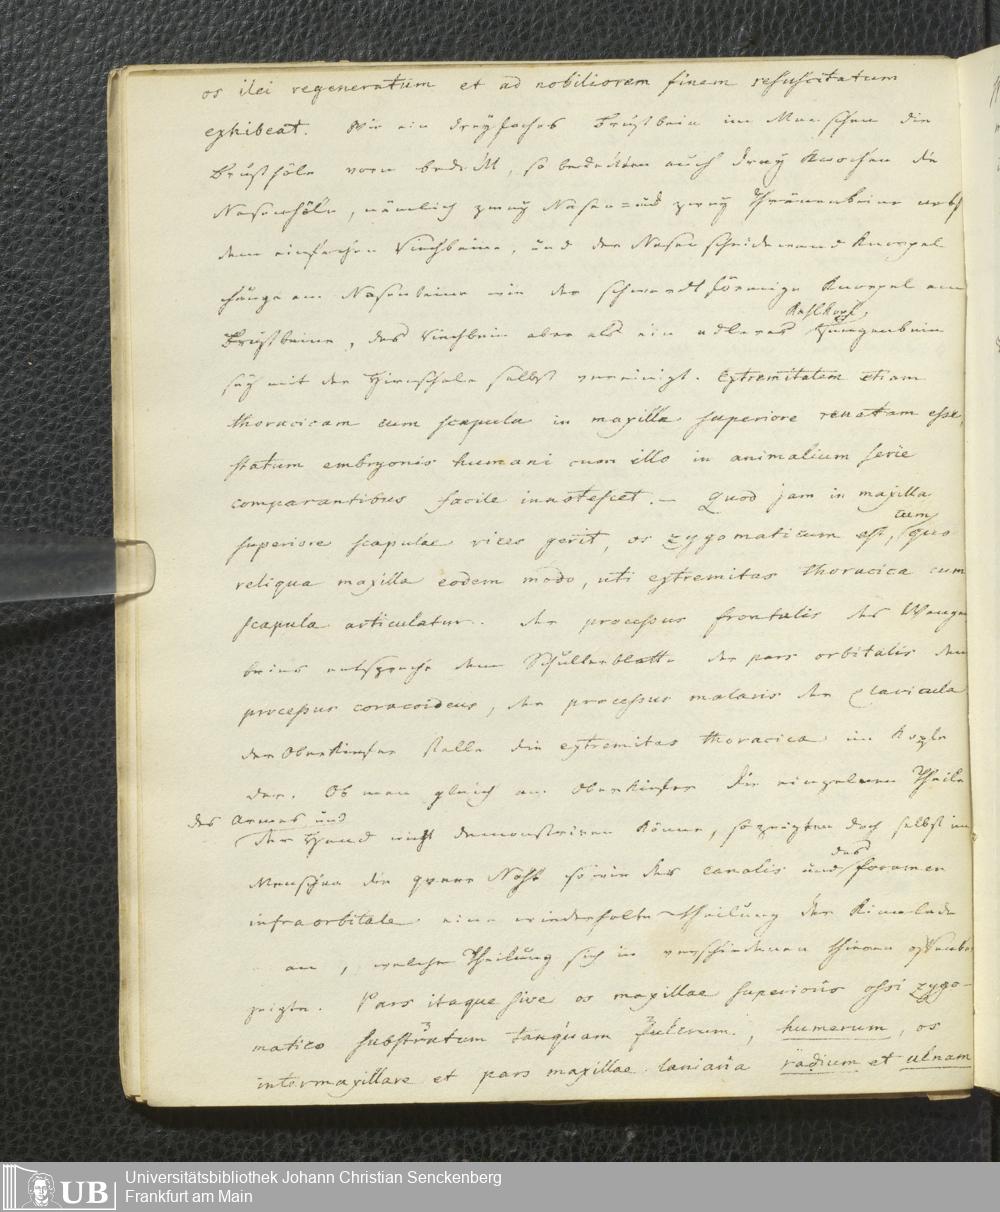 os ilei regeneratum et ad nobiliorem finem resuscitatum
exhibeat. Wie ein dreyfaches Brustbein im Menschen die
Brusthöle vorn bedeckt, so bedecken auch drey Knochen die
Nasenhöle, nämlich zwey Nasen= und zwey Thränenbeine nebst
dem einfachen Riechbeine, und der Nasenscheidewand Knorpel
hänge am Nasenbeine wie der schwerdtförmige Knorpel am
Kehlkopf,
Brustbeine, das Riechbein aber als ein edleres Zungenbein
sey mit der Hirnschale selbst vereinigt. Extremitatem etiam
thoracicam cum scapula in maxilla superiore renatam esse,
statum embryonis humani cum illo in animalium serie
comparantibus facile innotescet. — Quod jam in maxilla
superiore scapulae vices gerit, os zygomaticum est, cum quo
reliqua maxilla eodem modo, uti extremitas thoracica cum
scapula articulatur. Der processus frontalis des Wangen
beins entspreche dem Schulterblatte der pars orbitalis dem
processus coracoideus, der processus malaris der Clavicula
der Oberkiefer stelle die extremitas thoracica im Kopfe
dar. Ob man gleich am Oberkiefer die einzelnen Theile
des Armes und
der Hand nicht demonstriren könne, so zeigten doch selbst im
Menschen die quere Naht so wie der canalis und das foramen
infraorbitale eine wiederholte Theilung der Kinnlade
an, welche Theilung sich in verschiedenen Thieren offenbar
zeigte. Pars itaque sive os maxillae superioris ossi zygo-
matico substratum tanquam fulcrum, humerum, os
intermaxillare et pars maxillae laniaria radium et ulnam
Universitätsbibliothek Johann Christian Senckenberg
Frankfurt am Main
UB